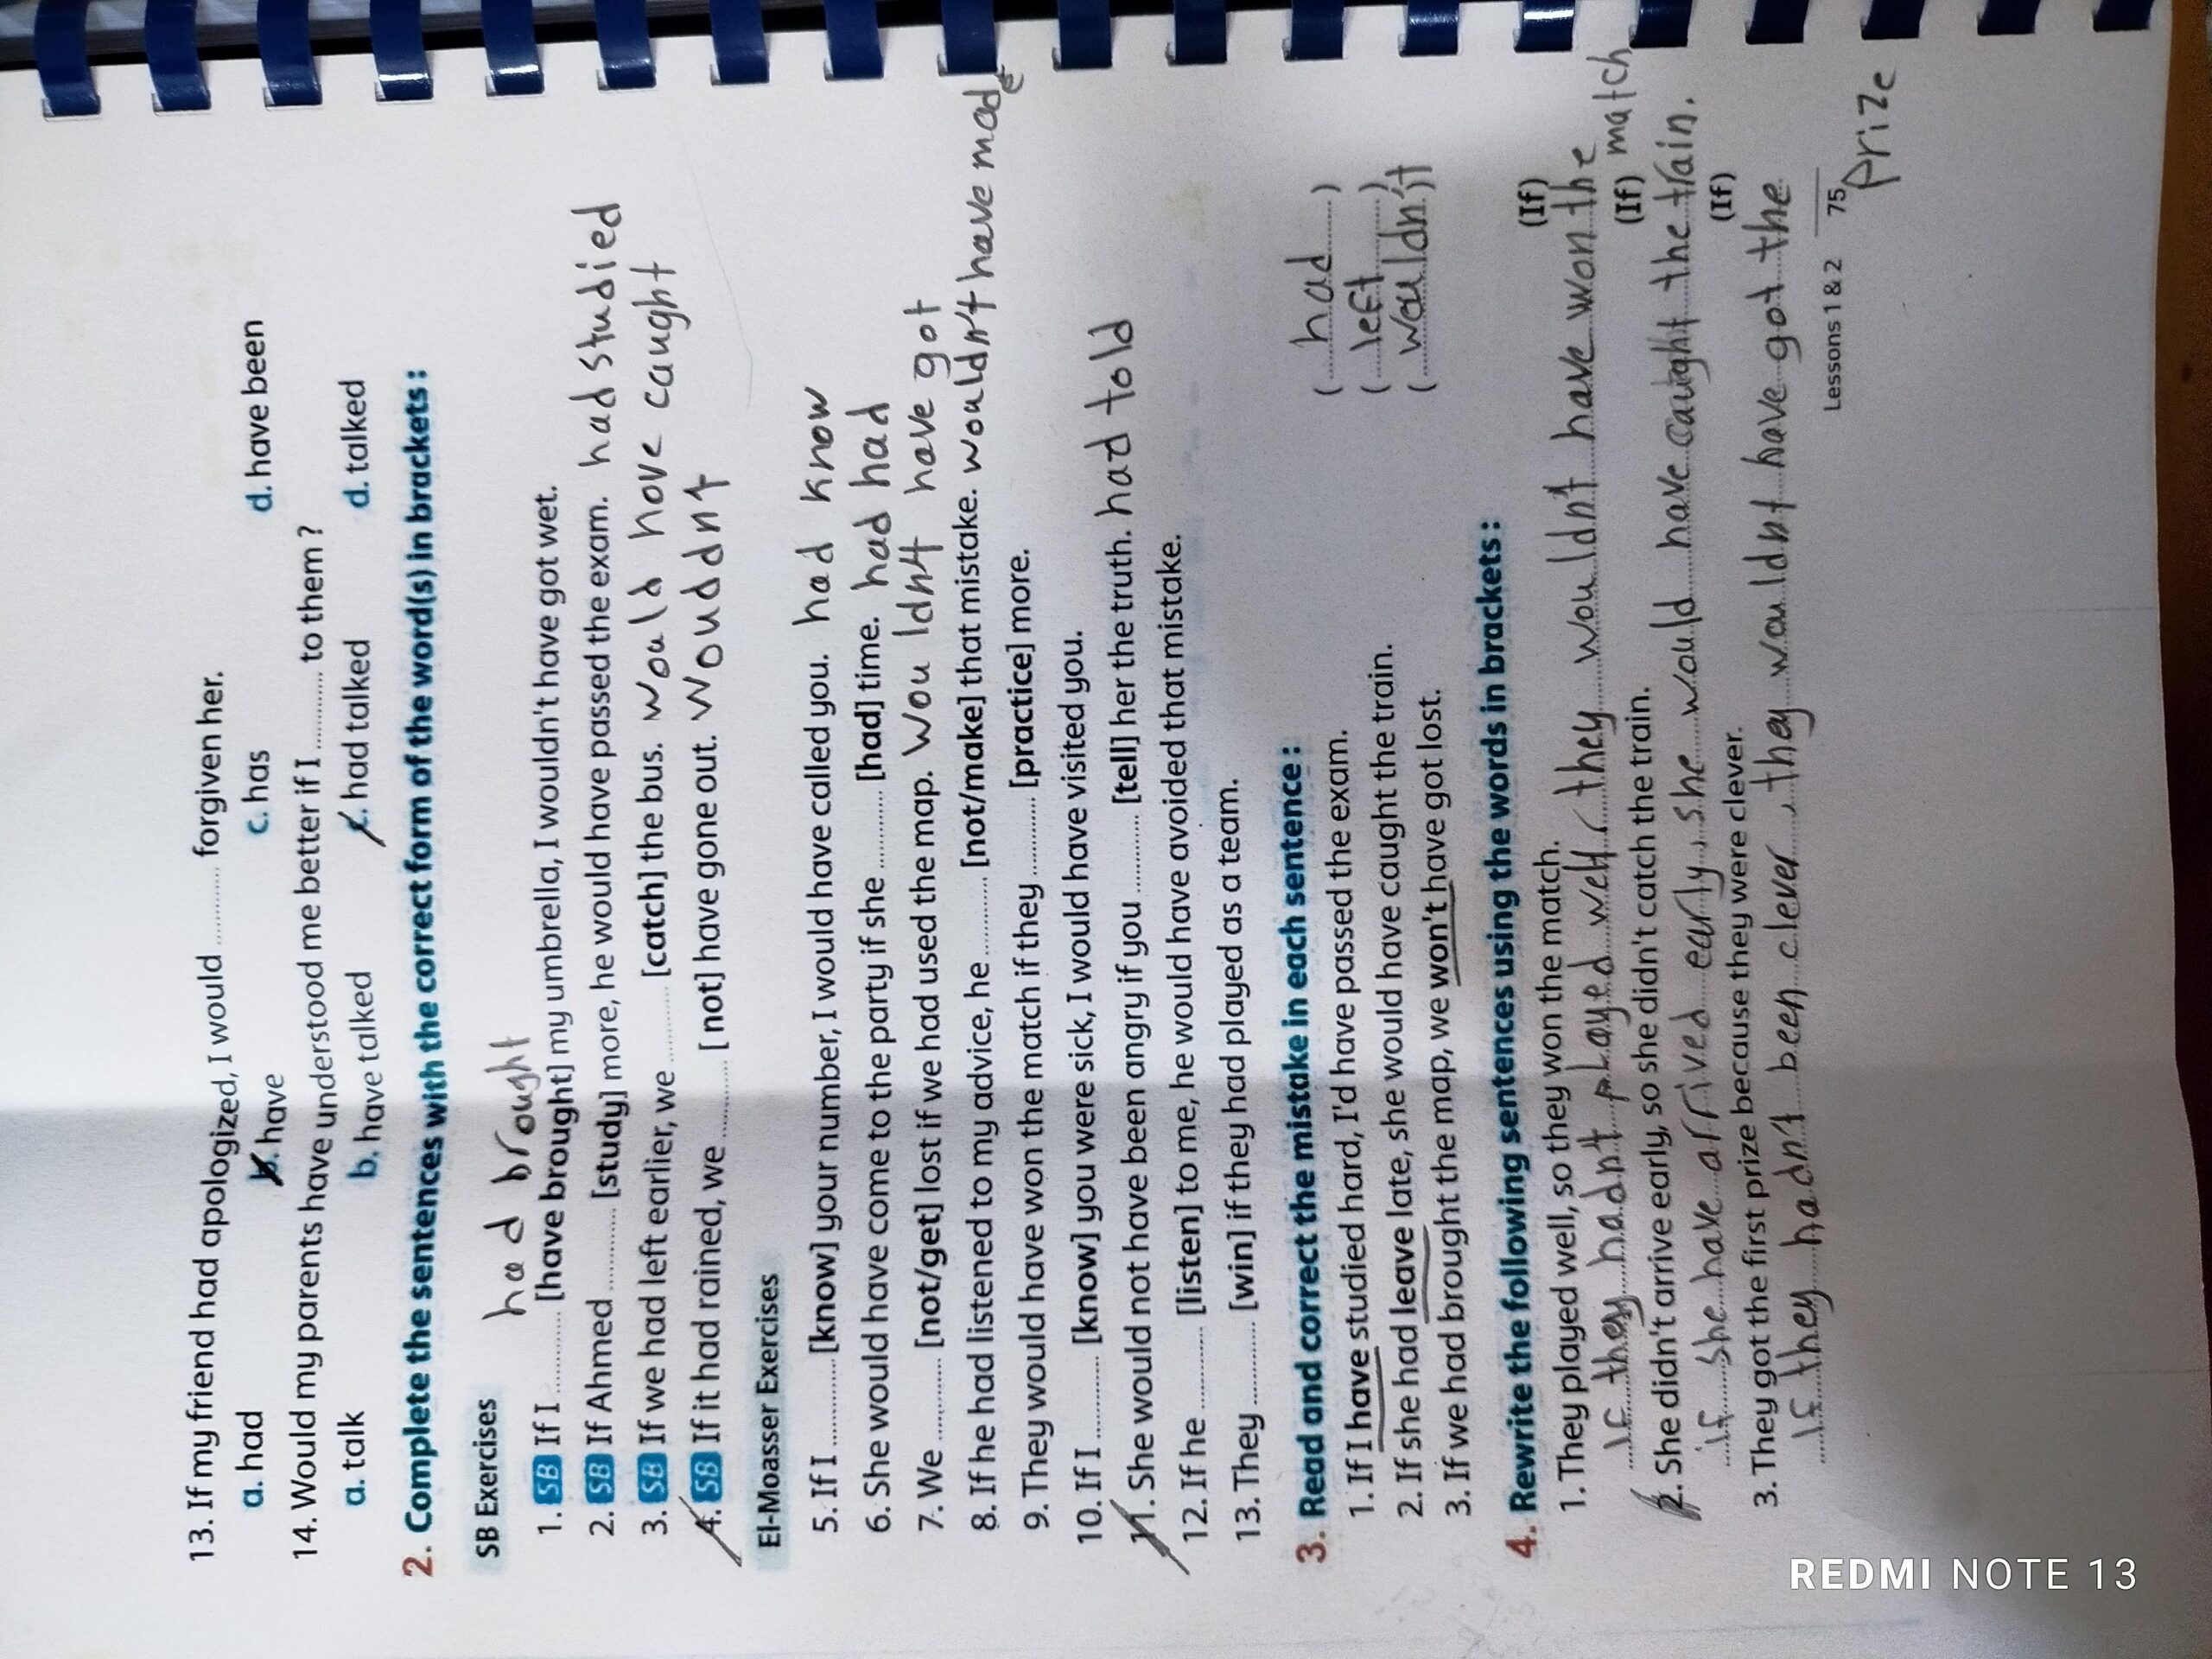 13. If my friend had apologized, I would .......... forgiven her.
a. had b. have c. has d. have been
14. Would my parents have understood me better if I .......... to them ?
a. talk b. have talked c. had talked d. talked
2. Complete the sentences with the correct form of the word(s) in brackets :
SB Exercises had brought
1. SB If I .......... [have brought] my umbrella, I wouldn't have got wet.
2. SB If Ahmed .......... [study] more, he would have passed the exam. had studied
3. SB If we had left earlier, we .......... [catch] the bus. would hove caught
4. SB If it had rained, we .......... [not] have gone out. wouddnt
El-Moasser Exercises
5. If I .......... [know] your number, I would have called you. had know
6. She would have come to the party if she .......... [had] time. had had
7. We .......... [not/get] lost if we had used the map. wouldn't have got
8. If he had listened to my advice, he .......... [not/make] that mistake. wouldn't have made
9. They would have won the match if they .......... [practice] more.
10. If I .......... [know] you were sick, I would have visited you.
11. She would not have been angry if you .......... [tell] her the truth. had told
12. If he .......... [listen] to me, he would have avoided that mistake.
13. They .......... [win] if they had played as a team.
3. Read and correct the mistake in each sentence :
1. If I have studied hard, I'd have passed the exam. (had)
2. If she had leave late, she would have caught the train. (left)
3. If we had brought the map, we won't have got lost. (wouldn't)
4. Rewrite the following sentences using the words in brackets :
1. They played well, so they won the match. (If)
If they hadnt played well, they wouldn't have won the match
2. She didn't arrive early, so she didn't catch the train. (If)
if she have arrived early, she would have caught the train.
3. They got the first prize because they were clever. (If)
If they hadn't been clever, they wouldnt have got the prize
Lessons 1 & 2 75
REDMI NOTE 13